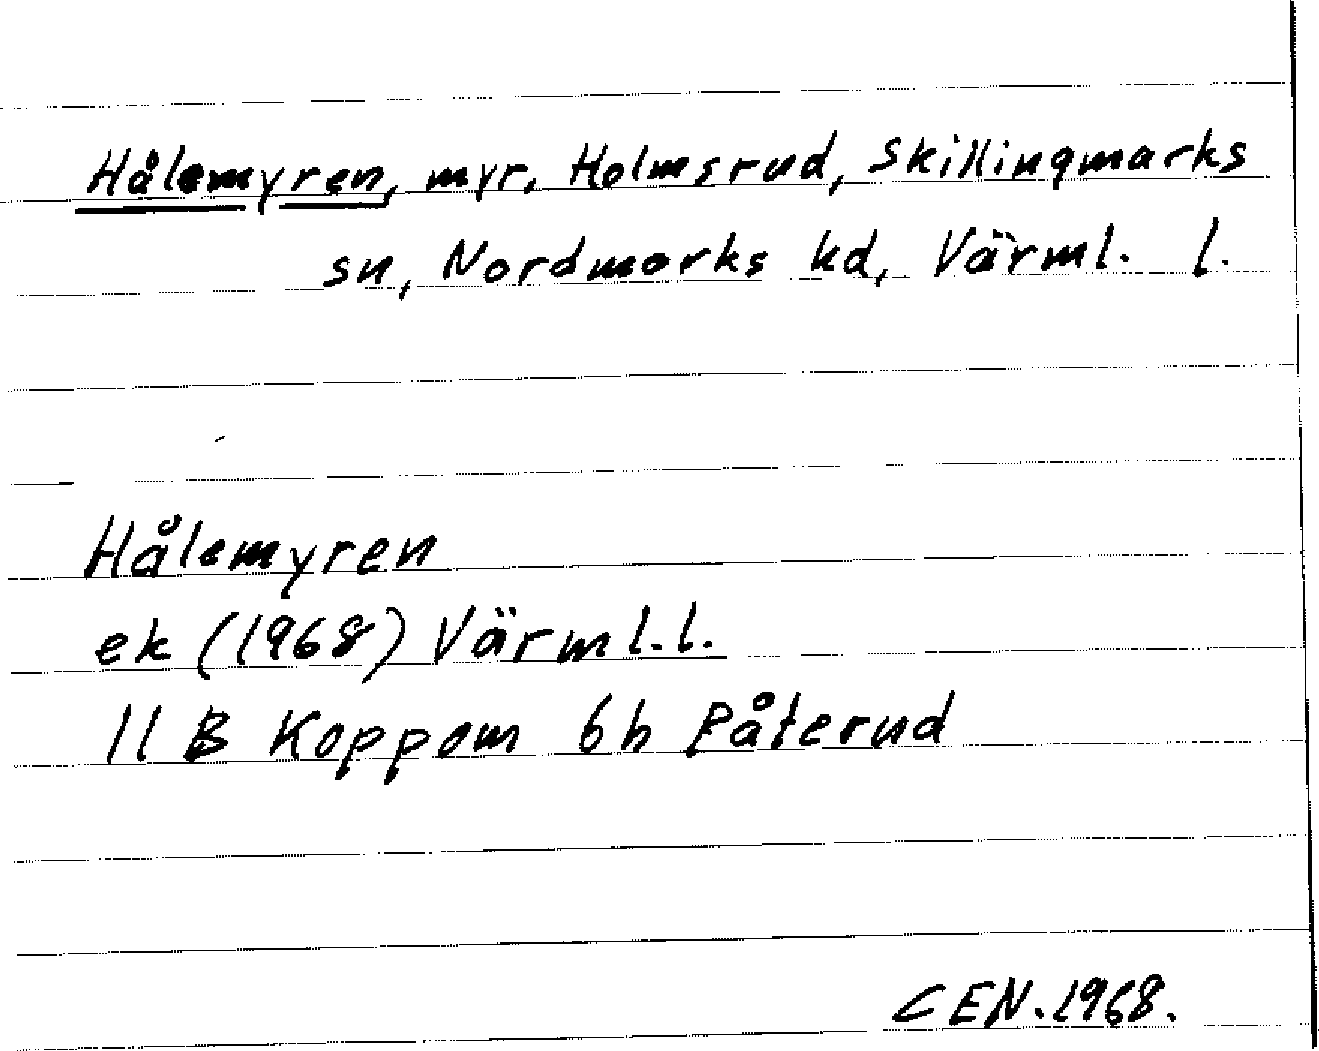 Hålemyren, myr, Holmsrud, Skillingmarks
sn, Nordmarks hd, Värml. l.
Hålemyren
ek (1968) Värml. l.
11 B Koppom 6h Påterud
CEN. 1968.